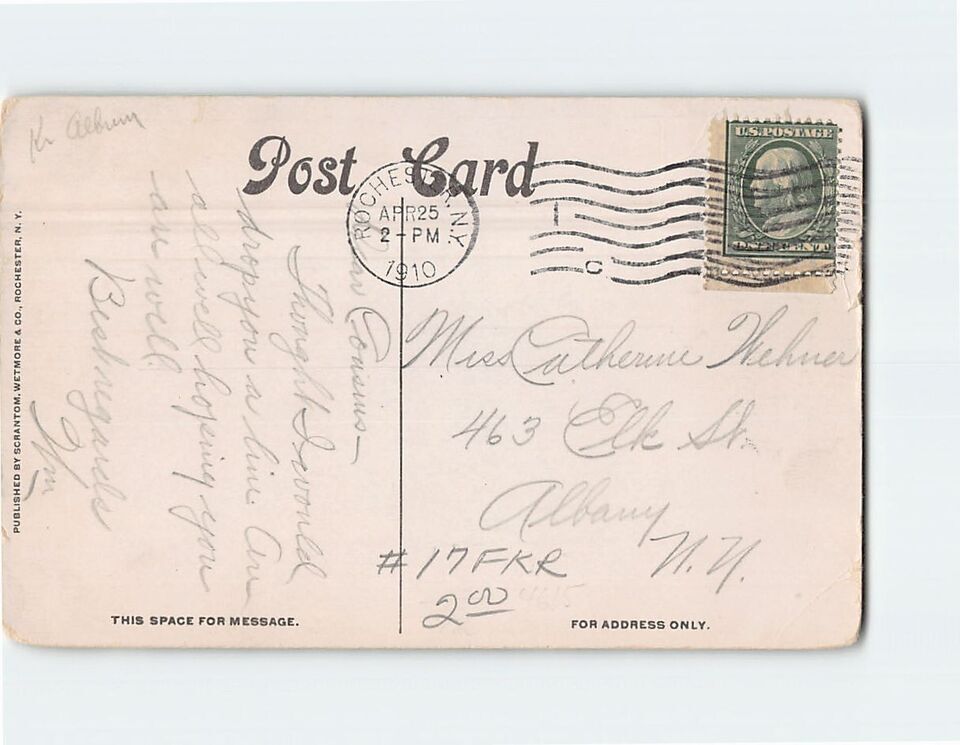 Kr Album
Post Card
ROCHESTER, N.Y.
APR 25
2-PM
1910
U.S. POSTAGE
ONE CENT
PUBLISHED BY SCRANTOM, WETMORE & CO., ROCHESTER, N. Y.
Cousins—
Thought I would
drop you a line Am
all well hoping you
are well.
Best regards
Wm
Miss Catherine Wehner
463 Elk St.
Albany
N.Y.
#17FKR
2.00
THIS SPACE FOR MESSAGE.
FOR ADDRESS ONLY.